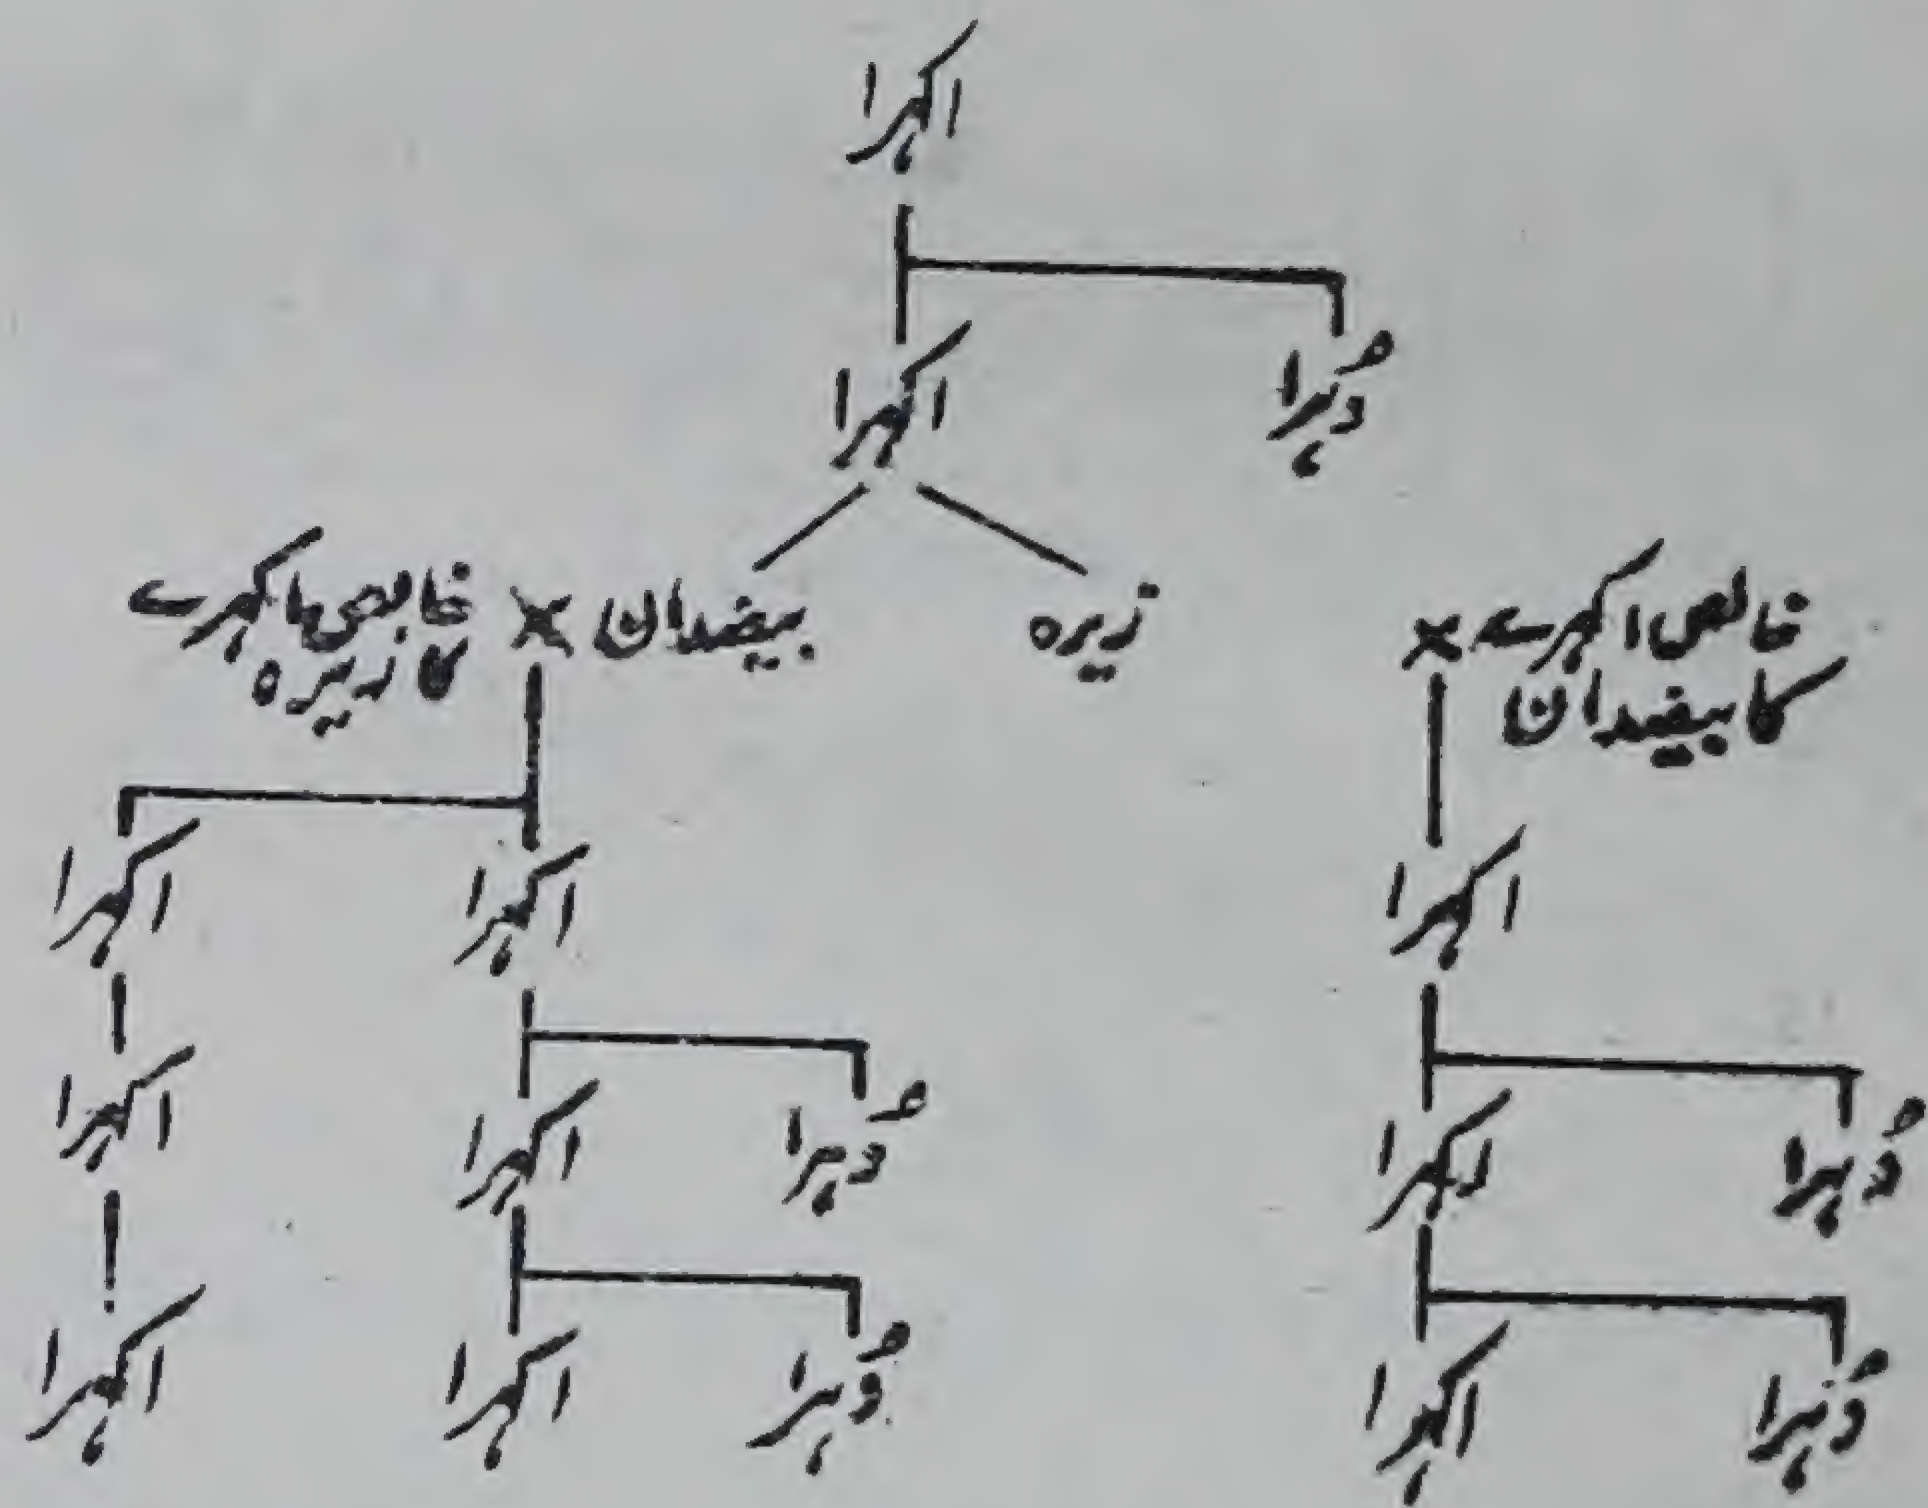 اکہرا
اکہرا
دُہرا
خالص اکہرے × زیرہ بیضدان × خالص اکہرے
کا بیضدان
کا زیرہ
اکہرا اکہرا اکہرا
دُہرا اکہرا دُہرا اکہرا اکہرا
دُہرا اکہرا دُہرا اکہرا اکہرا